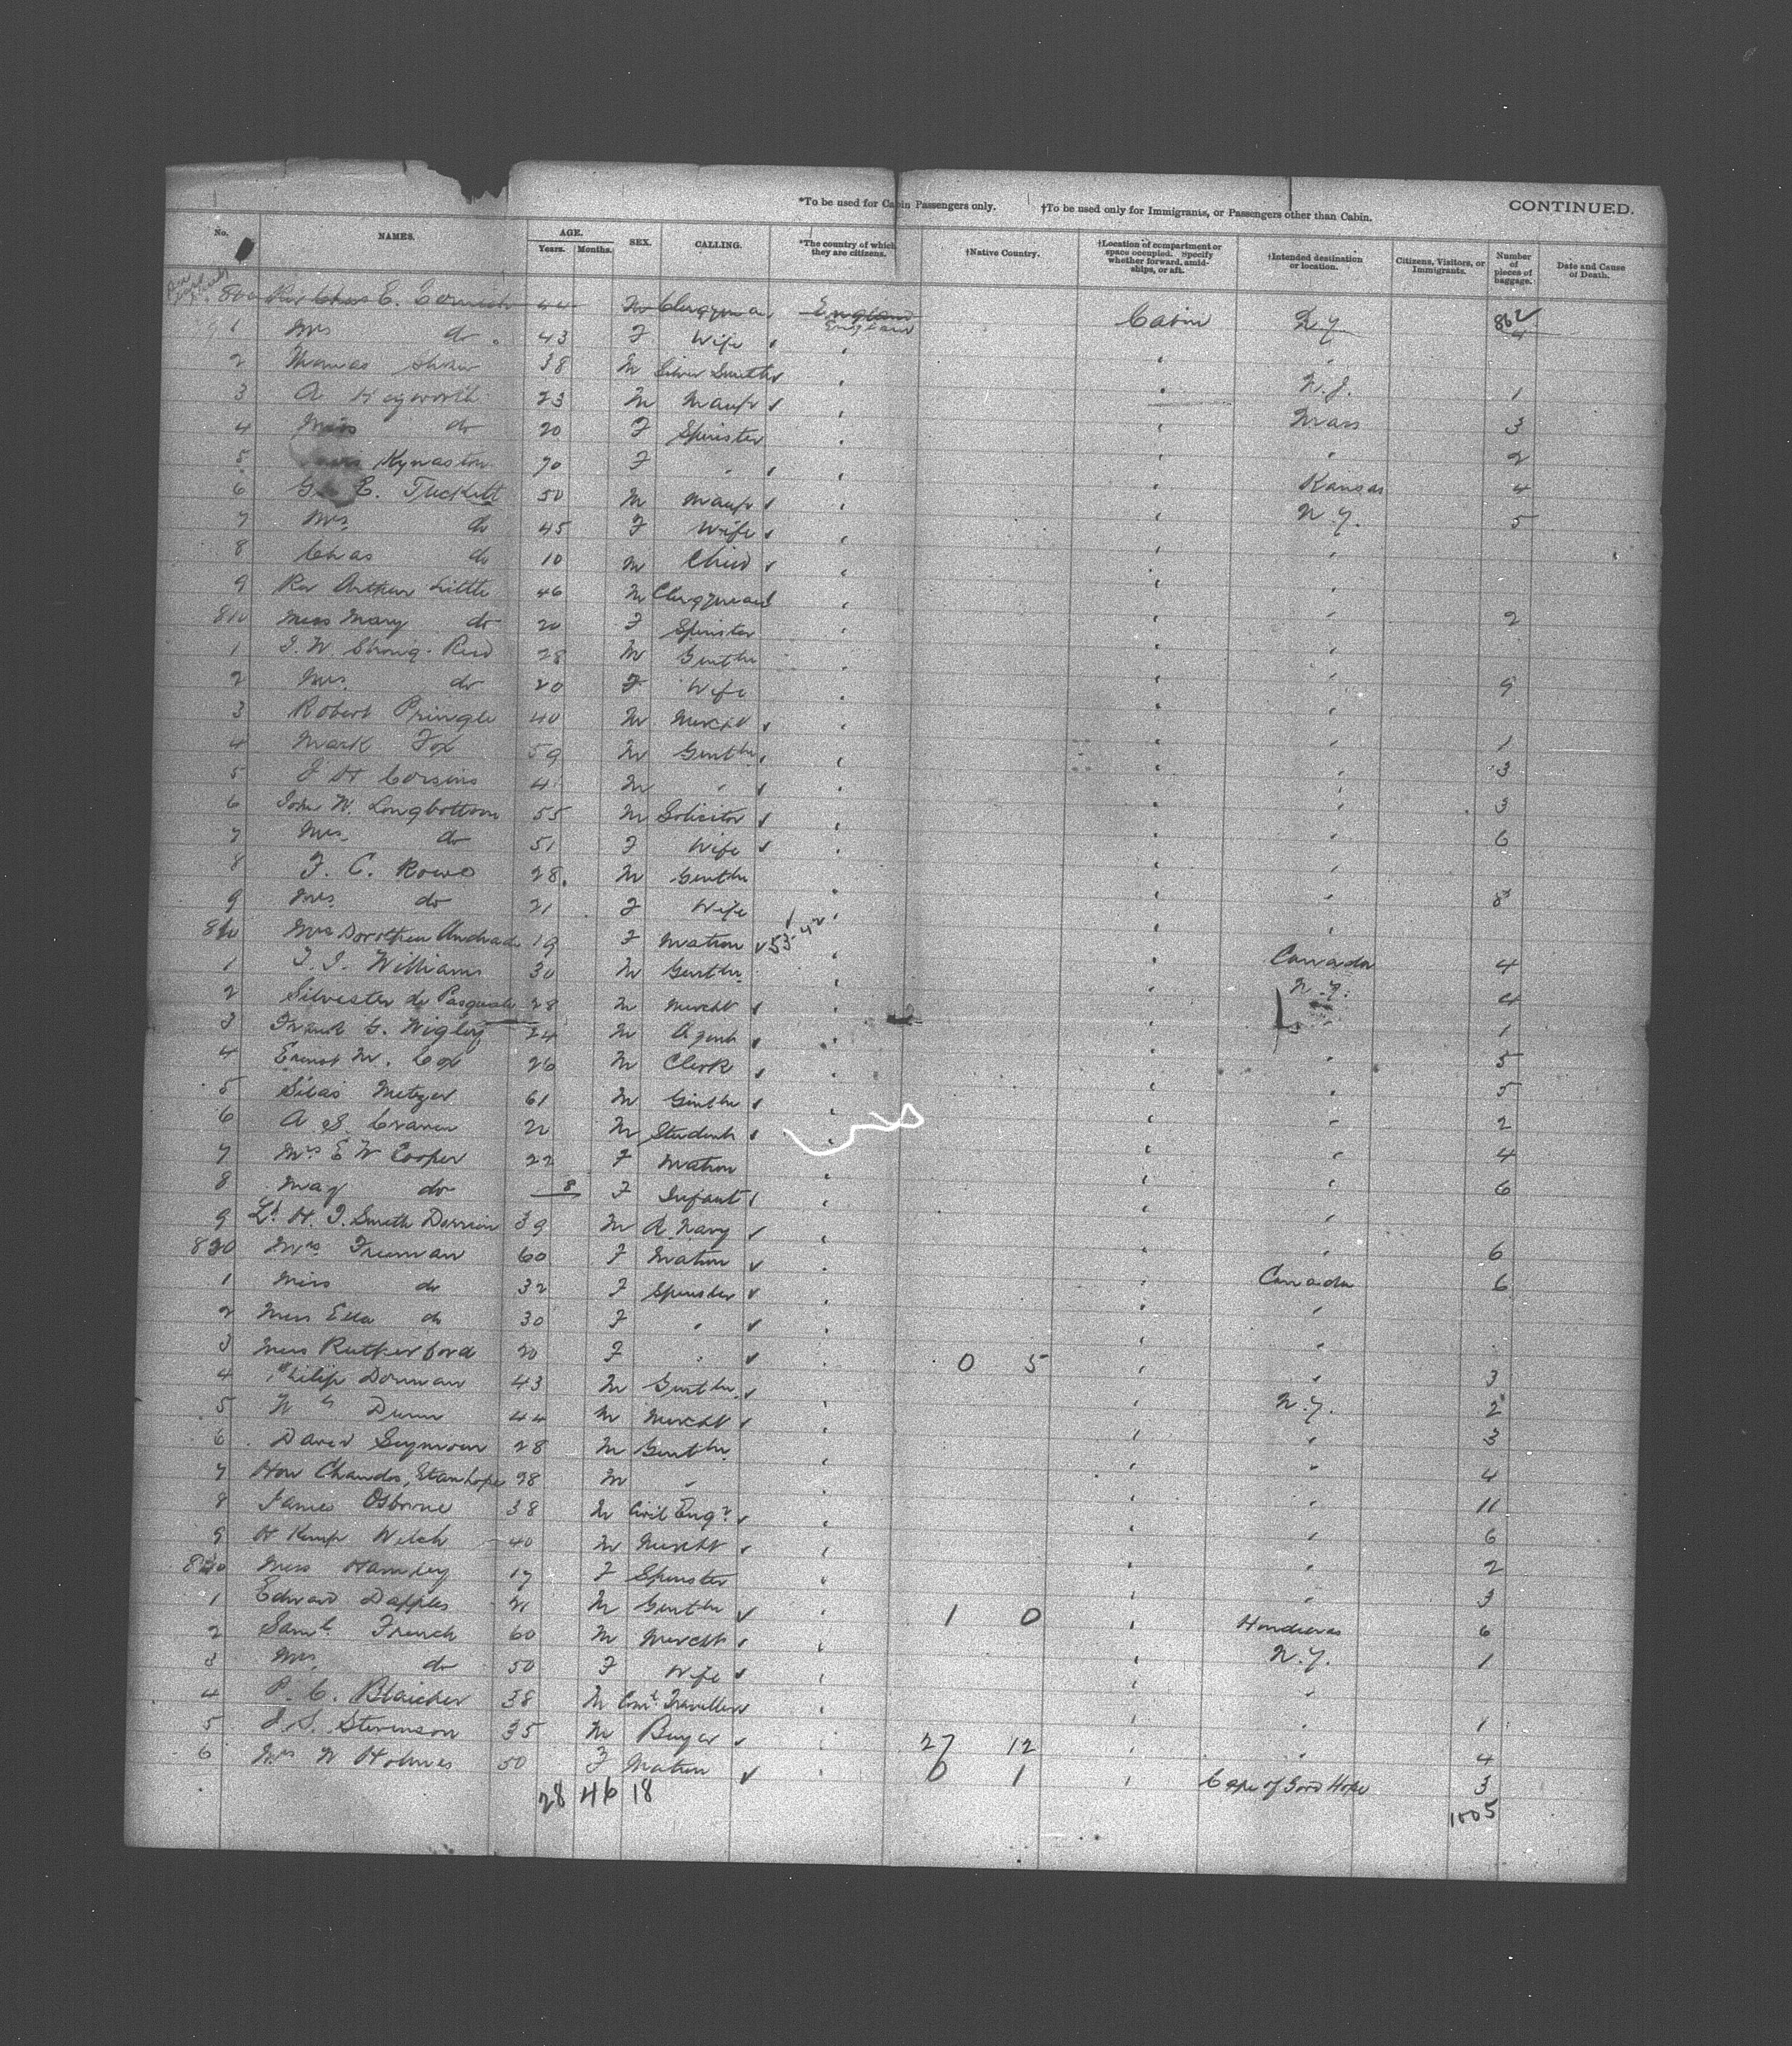 *To be used for Cabin Passengers only. †To be used only for Immigrants, or Passengers other than Cabin. CONTINUED.
No. NAMES. AGE. Years. Months. SEX. CALLING. *The country of which they are citizens. †Native Country. †Location of compartment or space occupied. Specify whether forward, amidships, or aft. †Intended destination or location. Citizens, Visitors, or Immigrants. Number of pieces of baggage. Date and Cause of Death.
800 E. 44 M Clergyman England England Cabin N.Y. 862 4
1 Mrs do 43 F Wife
2 Thomas Shaw 38 M Silver Smith N.J. 1
3 A Heyworth 23 M Manfr Mass 3
4 Miss do 20 F Spinster " 2
5 Kynaston 70 F " Kansas 4
6 G. E. Tuckett 50 M Manfr N.Y. 5
7 Mrs do 45 F Wife
8 Chas do 10 M Child
9 Rev Arthur Little 46 M Clergyman 2
810 Miss Mary do 20 F Spinster
1 J. W. Strong-Reid 28 M Gentln 9
2 Mrs. do 20 F Wife
3 Robert Pringle 40 M Mercht 1
4 Mark Fox 59 M Gentln 3
5 J H 4 M " 3
6 John W. Longbottom 55 M Solicitor 6
7 Mrs do 51 F Wife
8 F. C. Rowe 28 M Gentln 8
9 Mrs do 21 F Wife
Mrs Dorothea Andrade 19 F Matron Canada 4
1 Williams 30 M Gentln N.Y. 4
2 Silvester de Pasquale 28 M Mercht 1
3 Frank G. Wigley 24 M Agent 5
4 Ernest M. Cox 26 M Clerk 5
5 Silas Metzger 61 M Gentln 2
6 A. S. Craven M Student 4
7 Mrs E W Cooper 22 F Matron 6
8 May do 8 F Infant
9 Lt H. T. Smith Dorrien 39 M R. Navy 6
830 Mrs Freeman 60 F Matron Canada 6
1 Miss do 32 F Spinster
2 Miss Ella do 30 F "
3 Miss Rutherford 20 F " 0 5 3
4 Philip Dorman 43 M Gentln N.Y. 2
5 W G Dunn 44 M Mercht 3
6 David Seymour 28 M Gentln 4
7 Hon Chandos, Stanhope 28 M " 11
8 James Osborne 38 M Civil Engr 6
9 H Kemp Welch 40 M Mercht 2
840 Miss Hamley 17 F Spinster 3
1 Edward Dapples 21 M Gentln 1 0 Honduras 6
2 Saml. French 60 M Mercht N.Y. 1
3 Mrs do 50 F Wife
4 P. C. Blaicher 38 M Coml. Traveller 1
5 J. S. Stevenson 35 M Buyer 27 12 4
6 Mrs W Holmes 50 F Matron 0 1 Cape of Good Hope 3
28 46 18 1005